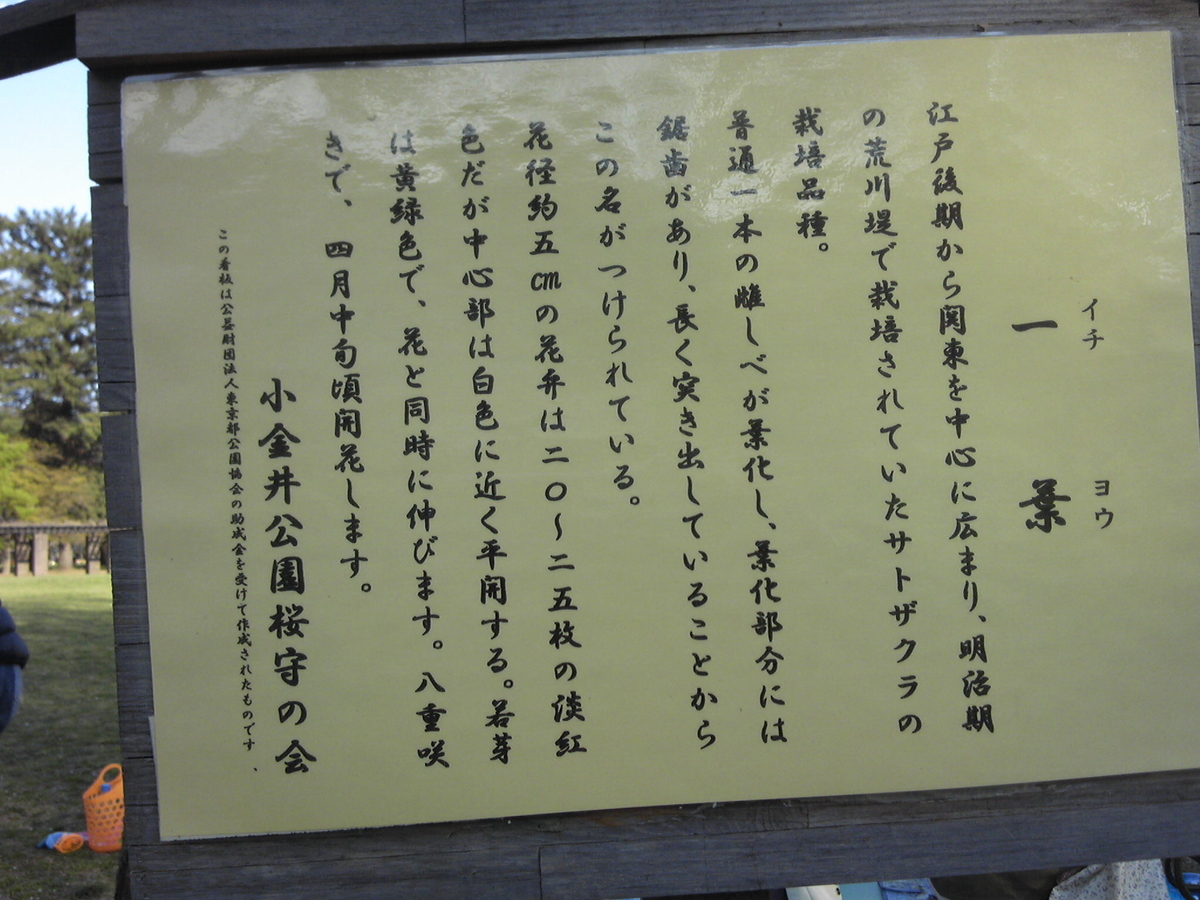 イチ ヨウ
一 葉
江戸後期から関東を中心に広まり、明治期
の荒川堤で栽培されていたサトザクラの
栽培品種。
普通一本の雌しべが葉化し、葉化部分には
鋸歯があり、長く突き出していることから
この名がつけられている。
花径約五㎝の花弁は二〇〜二五枚の淡紅
色だが中心部は白色に近く平開する。若芽
は黄緑色で、花と同時に伸びます。八重咲
きで、四月中旬頃開花します。
小金井公園桜守の会
この看板は公益財団法人東京都公園協会の助成金を受けて作成されたものです.